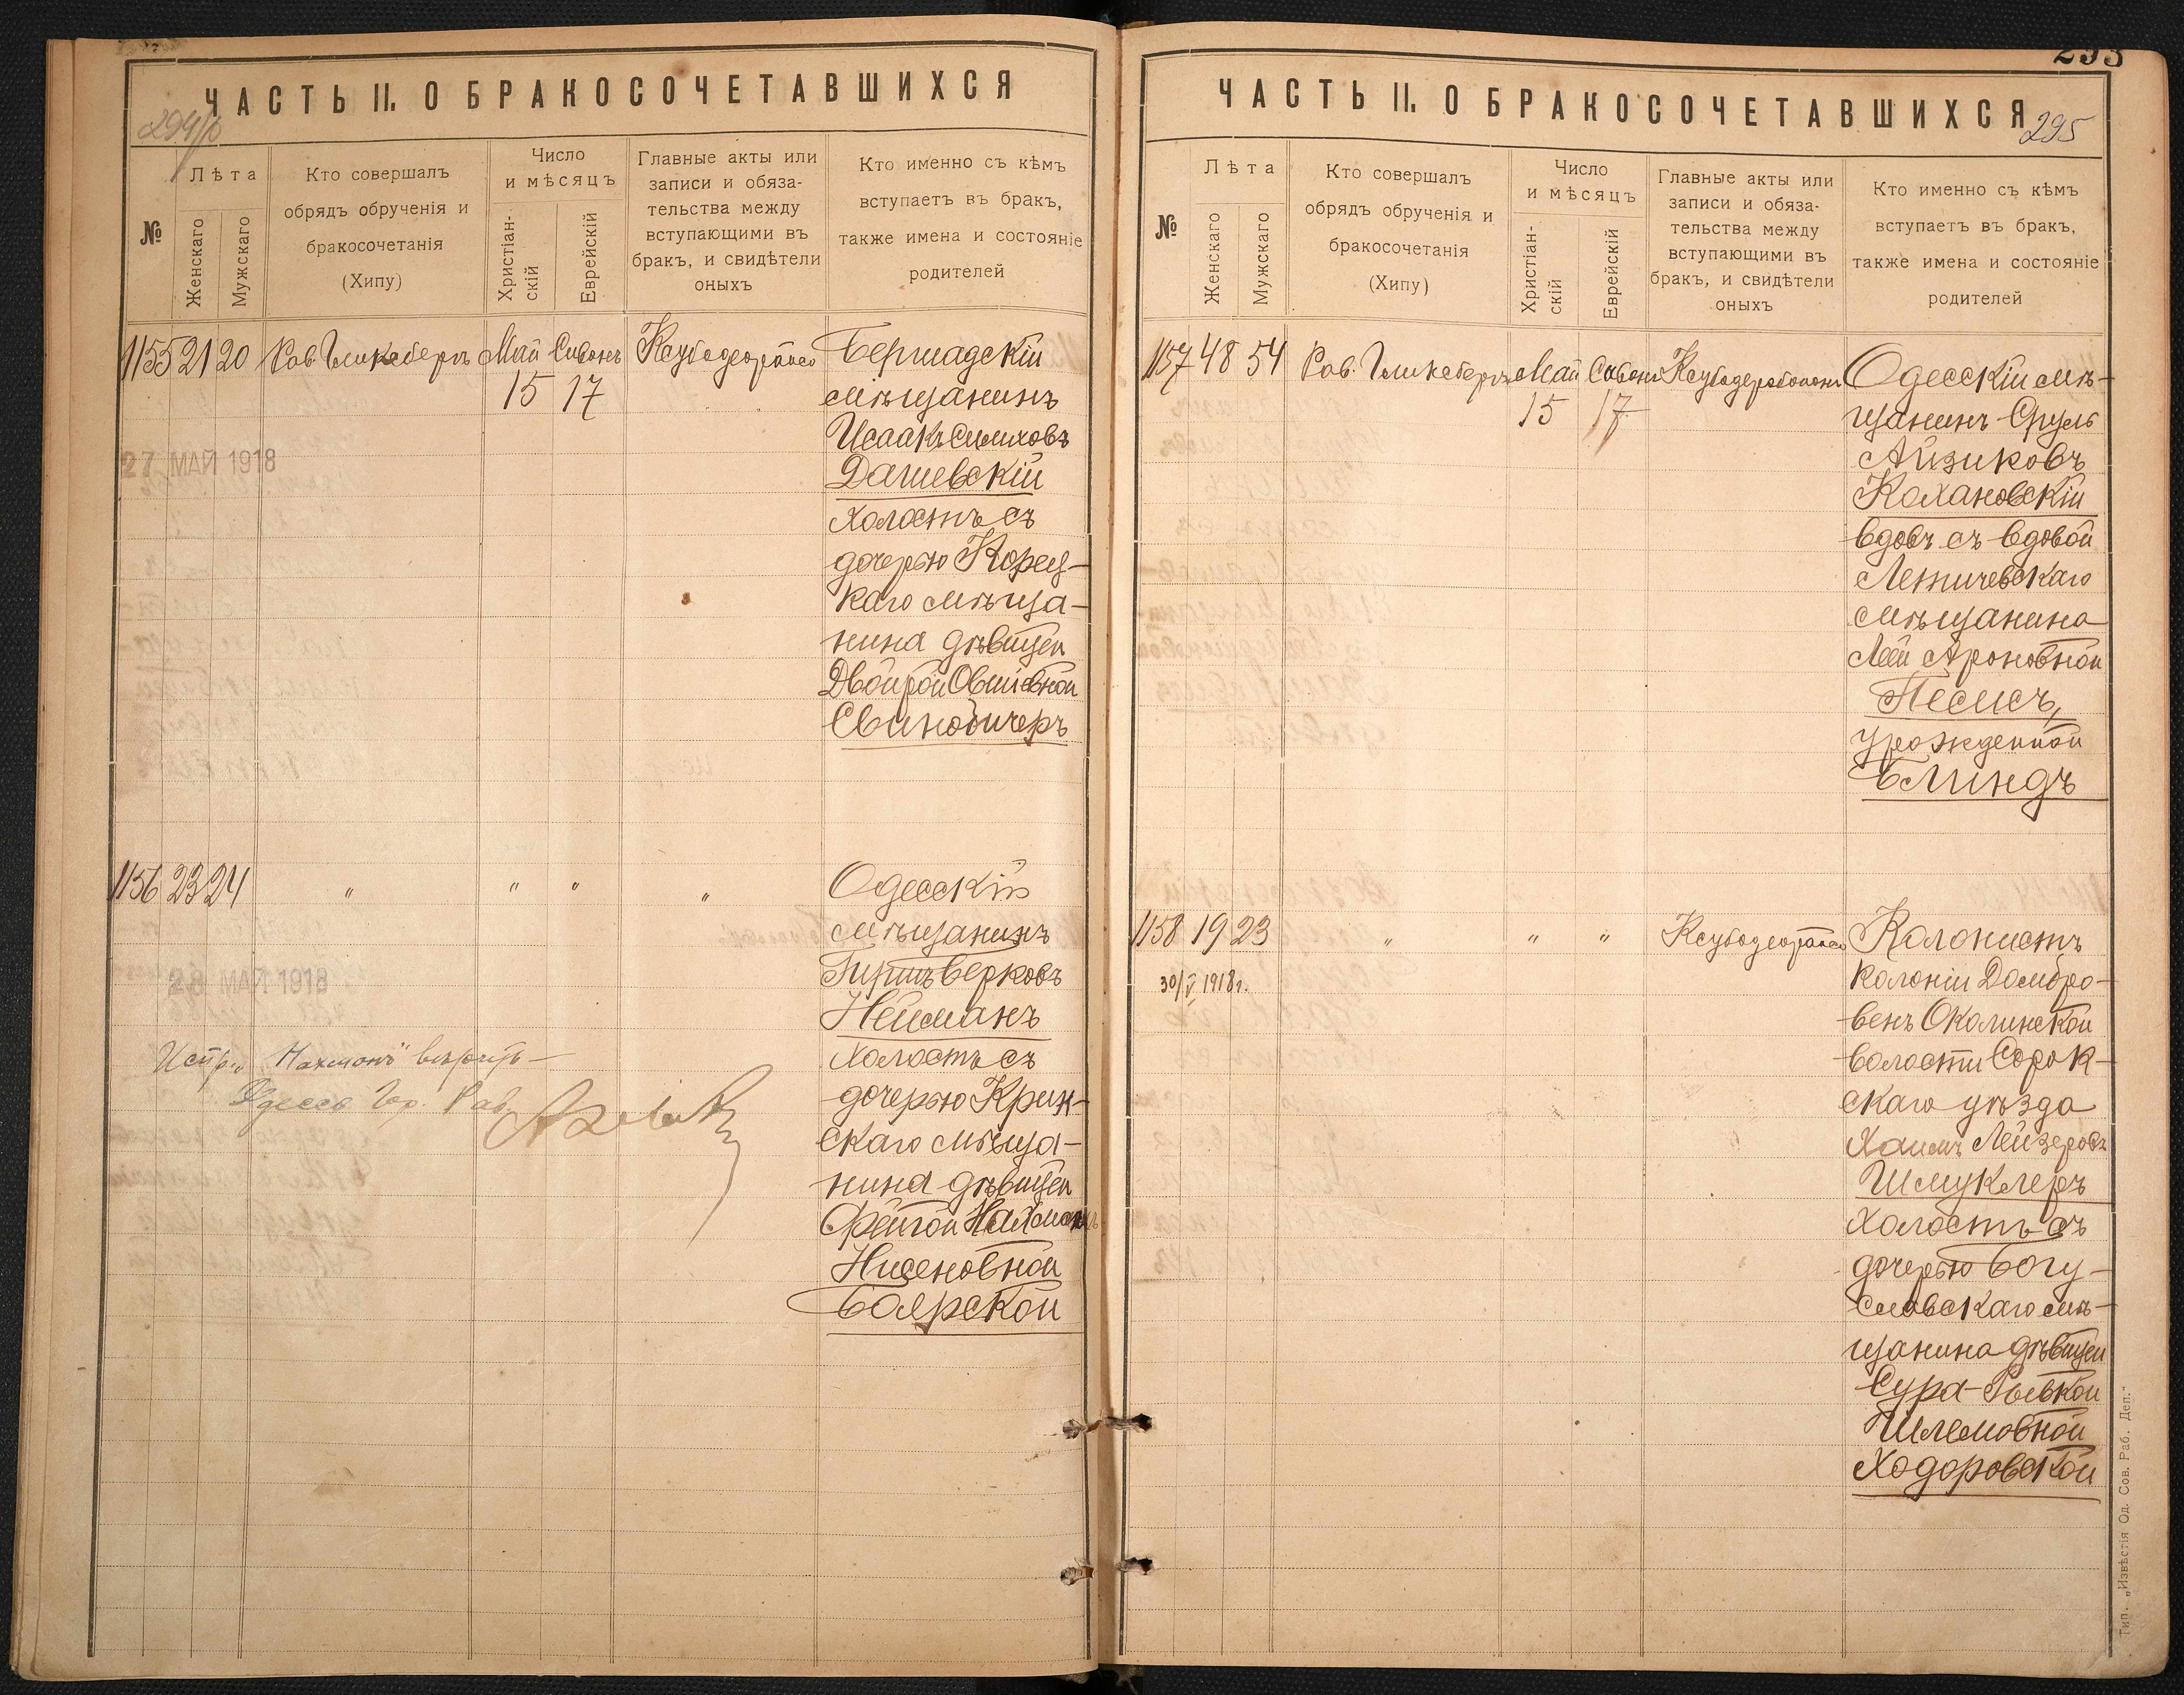 ЧАСТЬ II. О БРАКОСОЧЕТАВШИХСЯ
№
Лѣта
Женскаго
Мужскаго
Кто совершалъ
обрядъ обрученія и
бракосочетанія
(Хипу)
Число
и мѣсяцъ
Христіан-
скій
Еврейскій
Главные акты или
записи и обяза-
тельства между
вступающими въ
бракъ, и свидѣтели
оныхъ
Кто именно съ кѣмъ
вступаетъ въ бракъ,
также имена и состояніе
родителей
1155 21 20 Рав. Гликсбергъ Май Сивонъ
15 17
27 МАЙ 1918
Бершадскій
мѣщанинъ
Исаакъ Симховъ
Дашевскій
холостъ съ
дочерью Корец-
каго мѣща-
нина дѣвицей
Двойрой Овшіевной
Свинобичеръ
1156 23 24 " " " "
28 МАЙ 1918
Одесскій
мѣщанинъ
Гиршъ Берковъ
Нейманъ
холостъ съ
дочерью Крин-
скаго мѣща-
нина дѣвицей
Фейгой Нахманъ
Нисеновной
Боярской
Испр. „Нахманъ" вѣрить
Одесс. Гор. Рав.
293
ЧАСТЬ II. О БРАКОСОЧЕТАВШИХСЯ
295
№
Лѣта
Женскаго
Мужскаго
Кто совершалъ
обрядъ обрученія и
бракосочетанія
(Хипу)
Число
и мѣсяцъ
Христіан-
скій
Еврейскій
Главные акты или
записи и обяза-
тельства между
вступающими въ
бракъ, и свидѣтели
оныхъ
Кто именно съ кѣмъ
вступаетъ въ бракъ,
также имена и состояніе
родителей
1157 48 54 Рав. Гликсбергъ Май Сивонъ
15 17
Одесскій мѣ-
щанинъ Сруль
Айзиковъ
Колхановскій
вдовъ съ вдовой
Летичевскаго
мѣщанина
Леей Ароновной
Песисъ,
урожденной
Блиндъ
1158 19 23 " " "
30/V 1918г.
Колонистъ
колоніи Домбро-
венъ Околинской
волости Сорок-
скаго уѣзда
Хаимъ Лейзеровъ
Шмуклеръ
холостъ съ
дочерью Богу-
славскаго мѣ-
щанина дѣвицей
Сура-Рывкой
Шлемовной
Ходоровской
Тип. „Извѣстія Од. Сов. Раб. Деп."